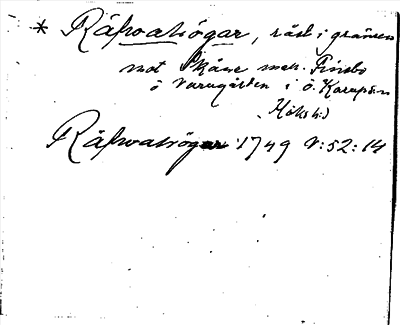 * Råkvatsögar, råst i gränsen
mot Skåne mell. Finsbo
o Varugården i Ö. Karups sn
Höks h.)
Råkvatsögar 1749 V:52:14